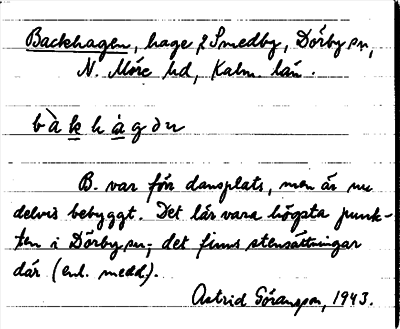 Backhagen, hage i Smedby, Dörby sn,
N. Möre hd, Kalm. län.
bàkhàgən
B. var förr dansplats, men är nu
delvis bebyggt. Det lär vara högsta punk-
ten i Dörby sn; det finns stensättningar
där (enl. medd.).
Astrid Göransson, 1943.